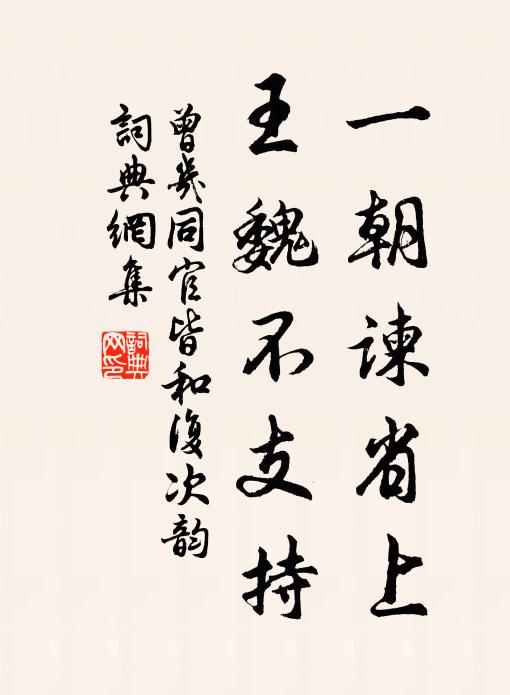 一朝諫省上
王魏不支持
曾幾同官皆和復次韵
詞典網集
詞典
网印